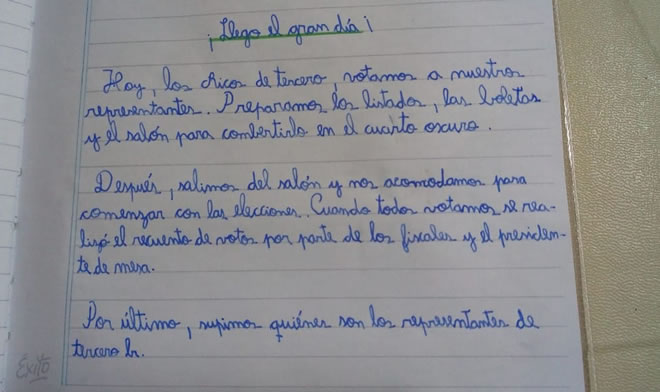 ¡Llego el gran día¡
Hoy, los chicos de tercero, votamos a nuestros
representantes. Preparamos los listados, las boletas
y el salón para combertirlo en el cuarto oscuro.
Después, salimos del salón y nos acomodamos para
comenzar con las elecciones. Cuando todos votamos se rea-
lizó el recuento de votos por parte de los fiscales y el presiden-
te de mesa.
Por último, supimos quiénes son los representantes de
tercero br.
Éxito